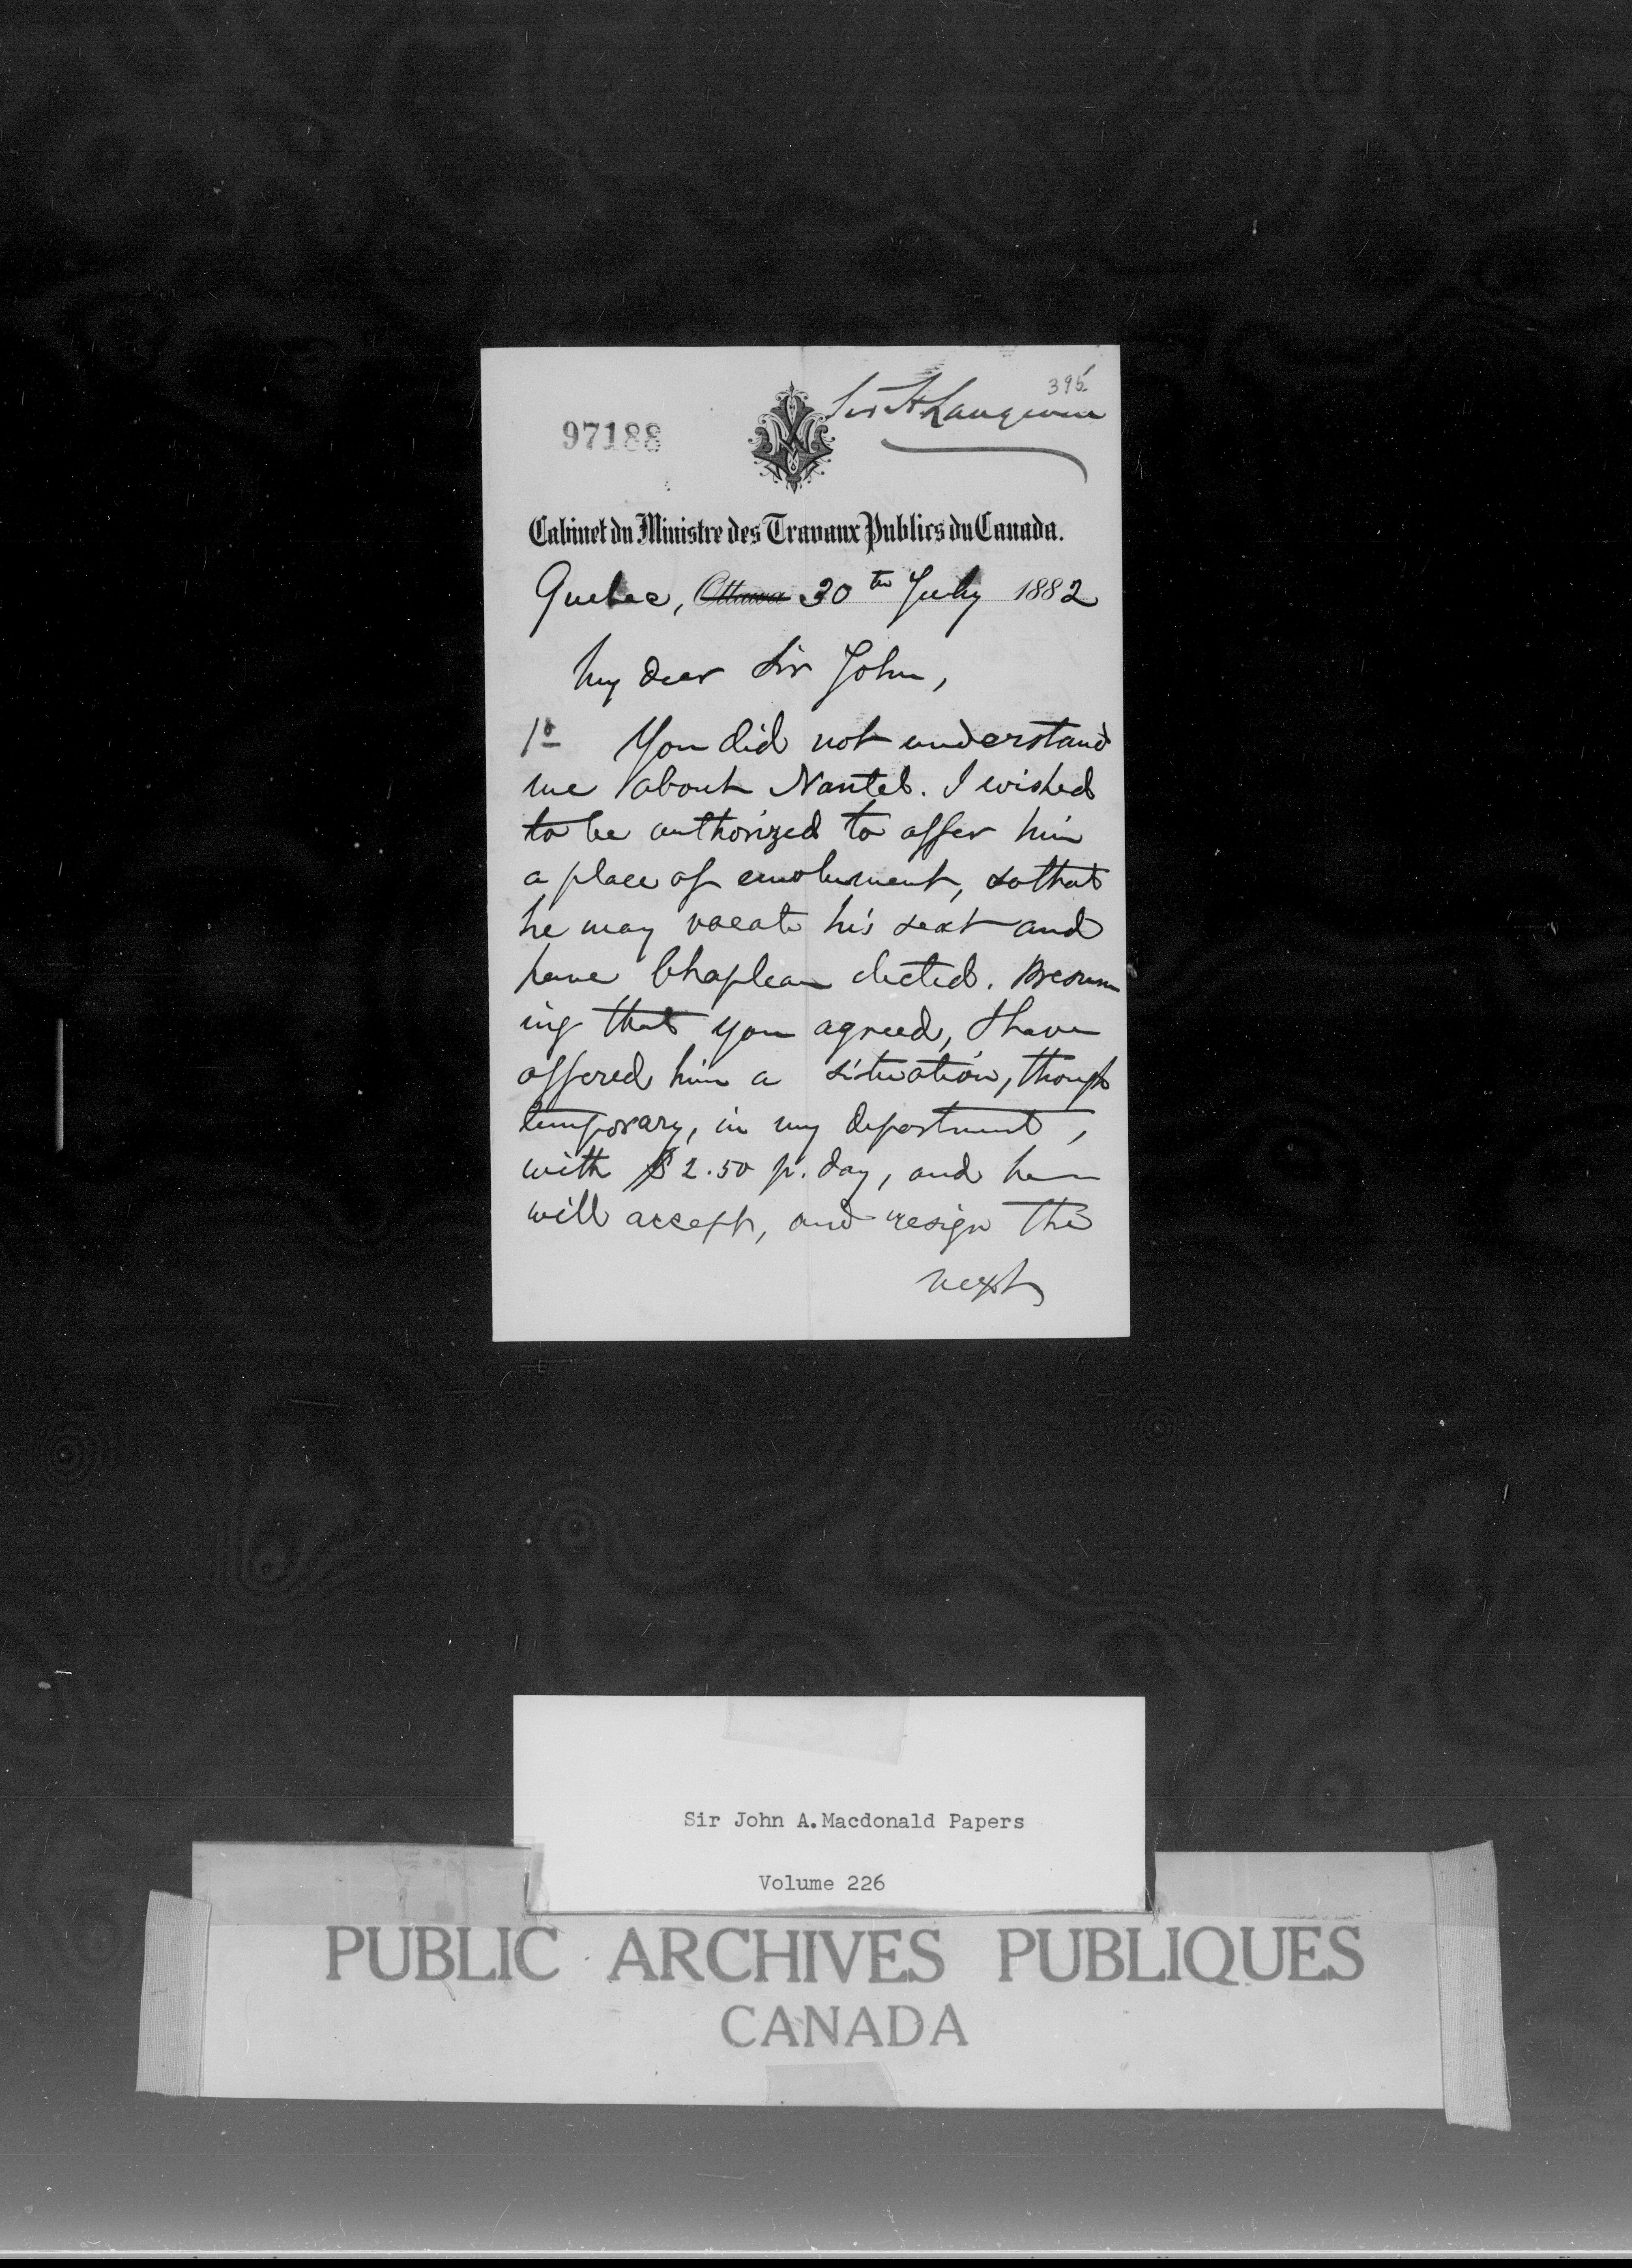 395
Sir H Langevin
97188
Cabinet du Ministre des Travaux Publics du Canada.
Quebec, Ottawa 30th July 1882
My dear Sir John,
1o You did not understand
me about Nantel. I wished
to be authorized to offer him
a place of emolument, so that
he may vacate his seat and
have Chapleau elected. Presum
ing that you agreed, I have
offered him a situation, though
temporary, in my department,
with $2.50 p. day, and he
will accept, and resign the
next
Sir John A. Macdonald Papers
Volume 226
PUBLIC ARCHIVES PUBLIQUES
CANADA